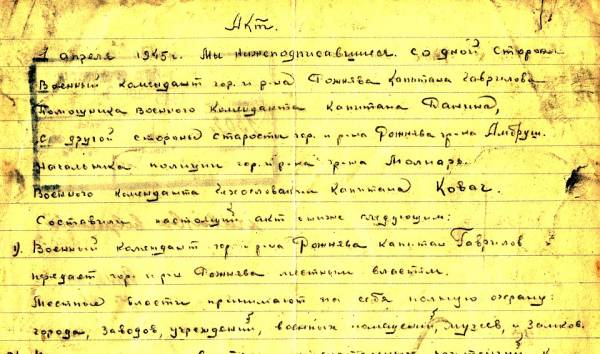 Акт.
1 апреля 1945г. Мы нижеподписавшиеся. со дной стороны
Военный комендант гор. и р-на Рожнява капитана Гаврилова
Помощника военного коменданта капитана Данина,
с другой стороны старосты гор. и р-на Рожнява гр-на Амбруш.
Начальника полиции гор. и р-на гр-на Молнаръ.
Военного коменданта Чехословакии Капитана Ковач.
Составили настоящий акт о ниже следующим:
1). Военный комендант гор. и р-на Рожнява капитан Гаврилов
передает гор. и р-н Рожнява местным властям.
Местные власти принимают на себя полную охрану:
города, заводов, учреждений, военных помещений, музеев, и замков.